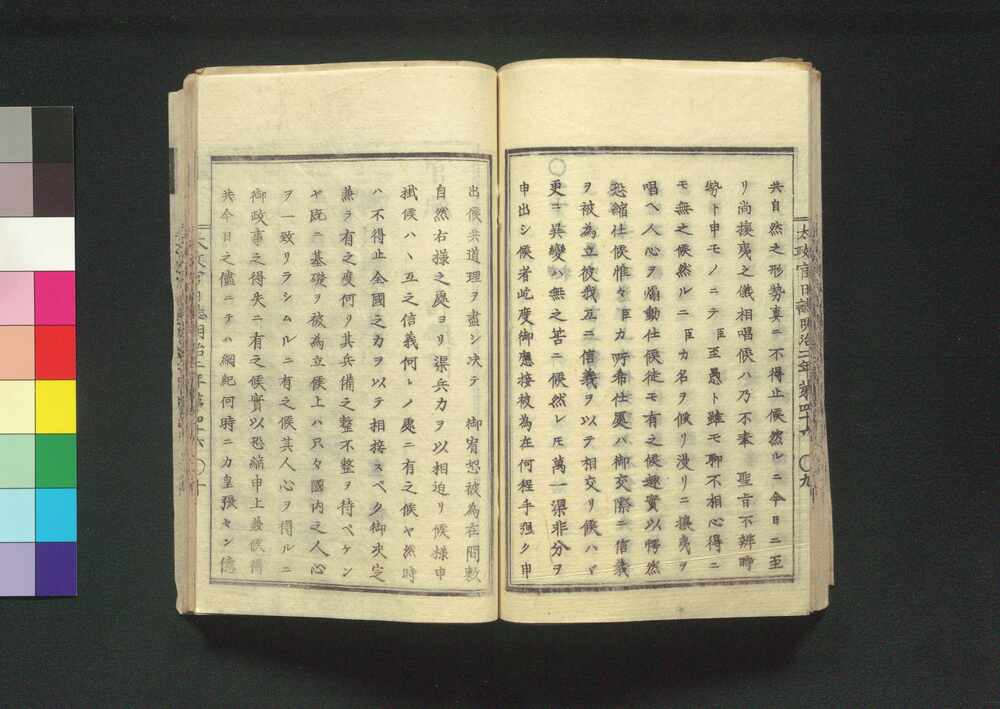 共自然之形勢真ニ不得止候然ルニ今日ニ至
リ尚攘夷之儀相唱候ハ乃不奉　聖旨不辨時
勢ト申モノニテ臣至愚ト雖モ聊不相心得ニ
モ無之候然ルニ臣カ名ヲ候リ漫リニ攘夷ヲ
唱ヘ人心ヲ煽動仕候徒モ有之候趣實以愕然
恐縮仕候惟々臣カ所希仕處ハ御交際ニ信義
ヲ被為立彼我互ニ信義ヲ以テ相交リ候ハヽ
更ニ異變ハ無之筈ニ候然レ𪜈萬一渠非分ヲ
申出シ候者屹度御應接被為在何程手强ク申
太政官日誌明治二年第四十六　〇九
出候共道理ヲ盡シ决テ　御宥恕被為在間敷
自然右操之處ヨリ渠兵力ヲ以相迫リ候様申
掛候ハヽ互之信義何レノ處ニ有之候ヤ然時
ハ不得止全國之力ヲ以テ相接スヘク御决定
兼テ有之度何ソ其兵備之整不整ヲ待ヘケン
ヤ既ニ基礎ヲ被為立候上ハ只々國内之人心
ヲ一致リラシムルニ有之候其人心ヲ得ルニ
御政事之得失ニ有之候實以恐縮申上兼候得
共今日之儘ニテハ綱紀何時ニカ皇張セン億
太政官日誌明治二年第四十六　〇十